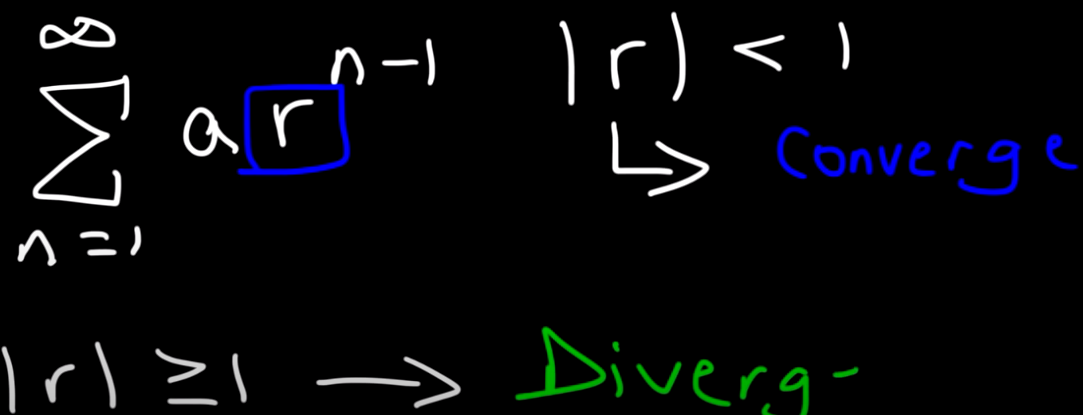 ∞
∑ a r^{n-1} |r| < 1
n=1 ↳ Converge
|r| ≥ 1 → Diverg-